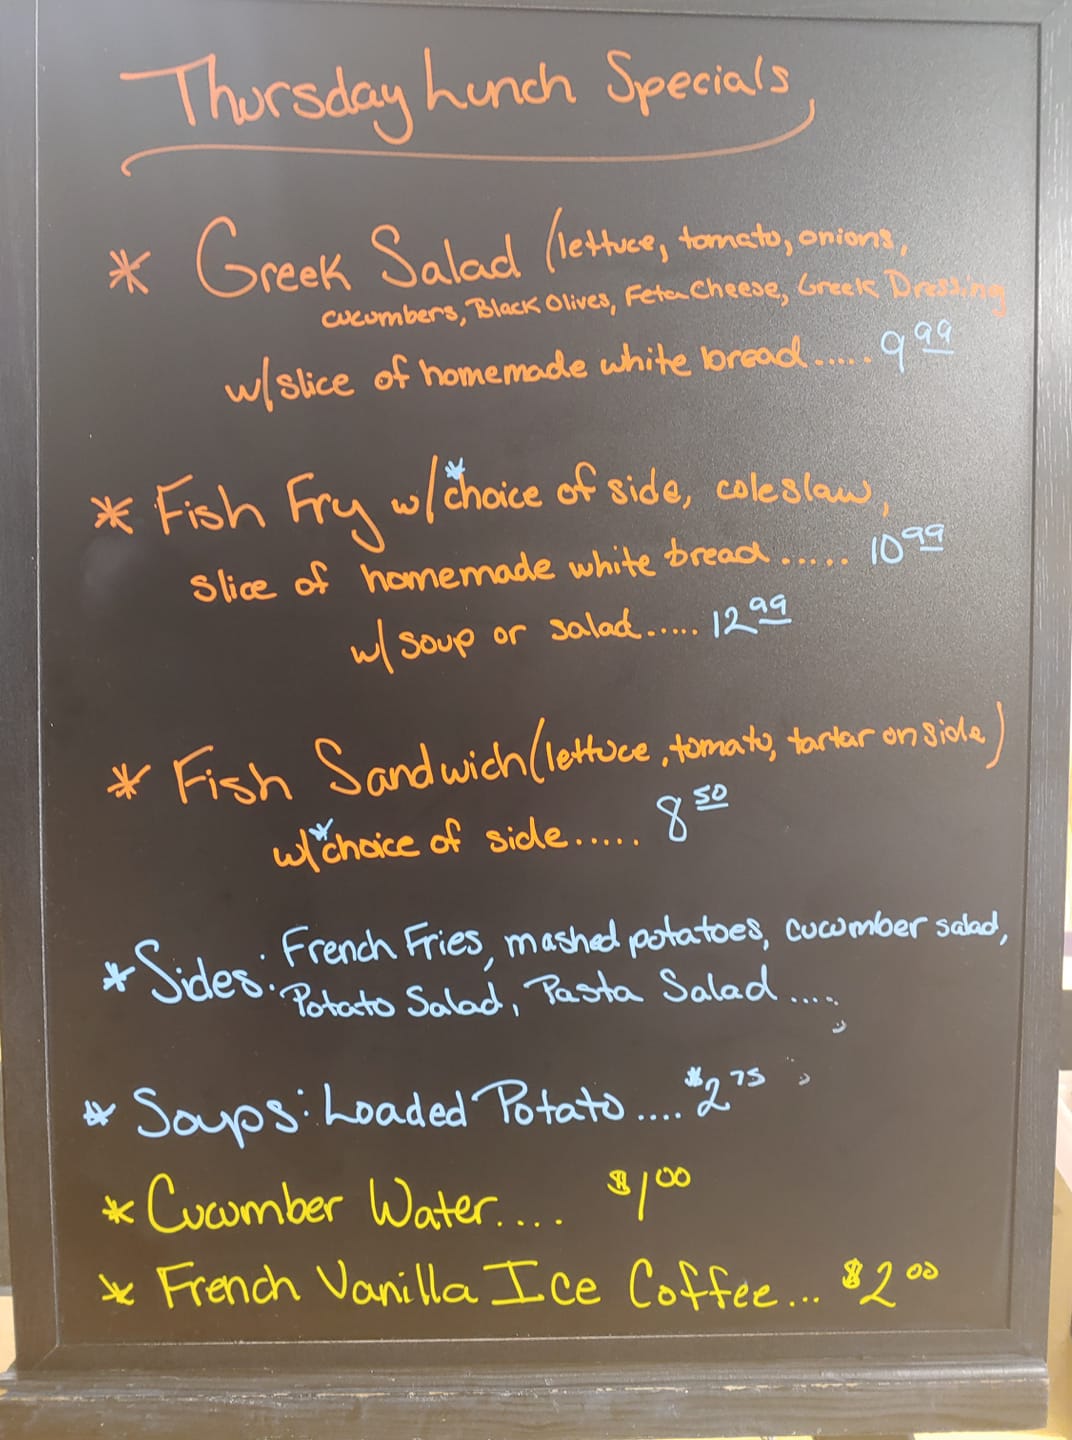 Thursday Lunch Specials
* Greek Salad (lettuce, tomato, onions,
cucumbers, Black Olives, Feta Cheese, Greek Dressing
w/slice of homemade white bread ..... 9 99
* Fish Fry w/ *choice of side, coleslaw,
slice of homemade white bread ..... 10 99
w/ soup or salad ..... 12 99
* Fish Sandwich (lettuce, tomato, tartar on side)
w/ *choice of side ...... 8 50
*Sides: French Fries, mashed potatoes, cucumber salad,
Potato Salad, Pasta Salad ....
* Soups: Loaded Potato .... $2 75
* Cucumber Water.... $1 00
* French Vanilla Ice Coffee... $2 00